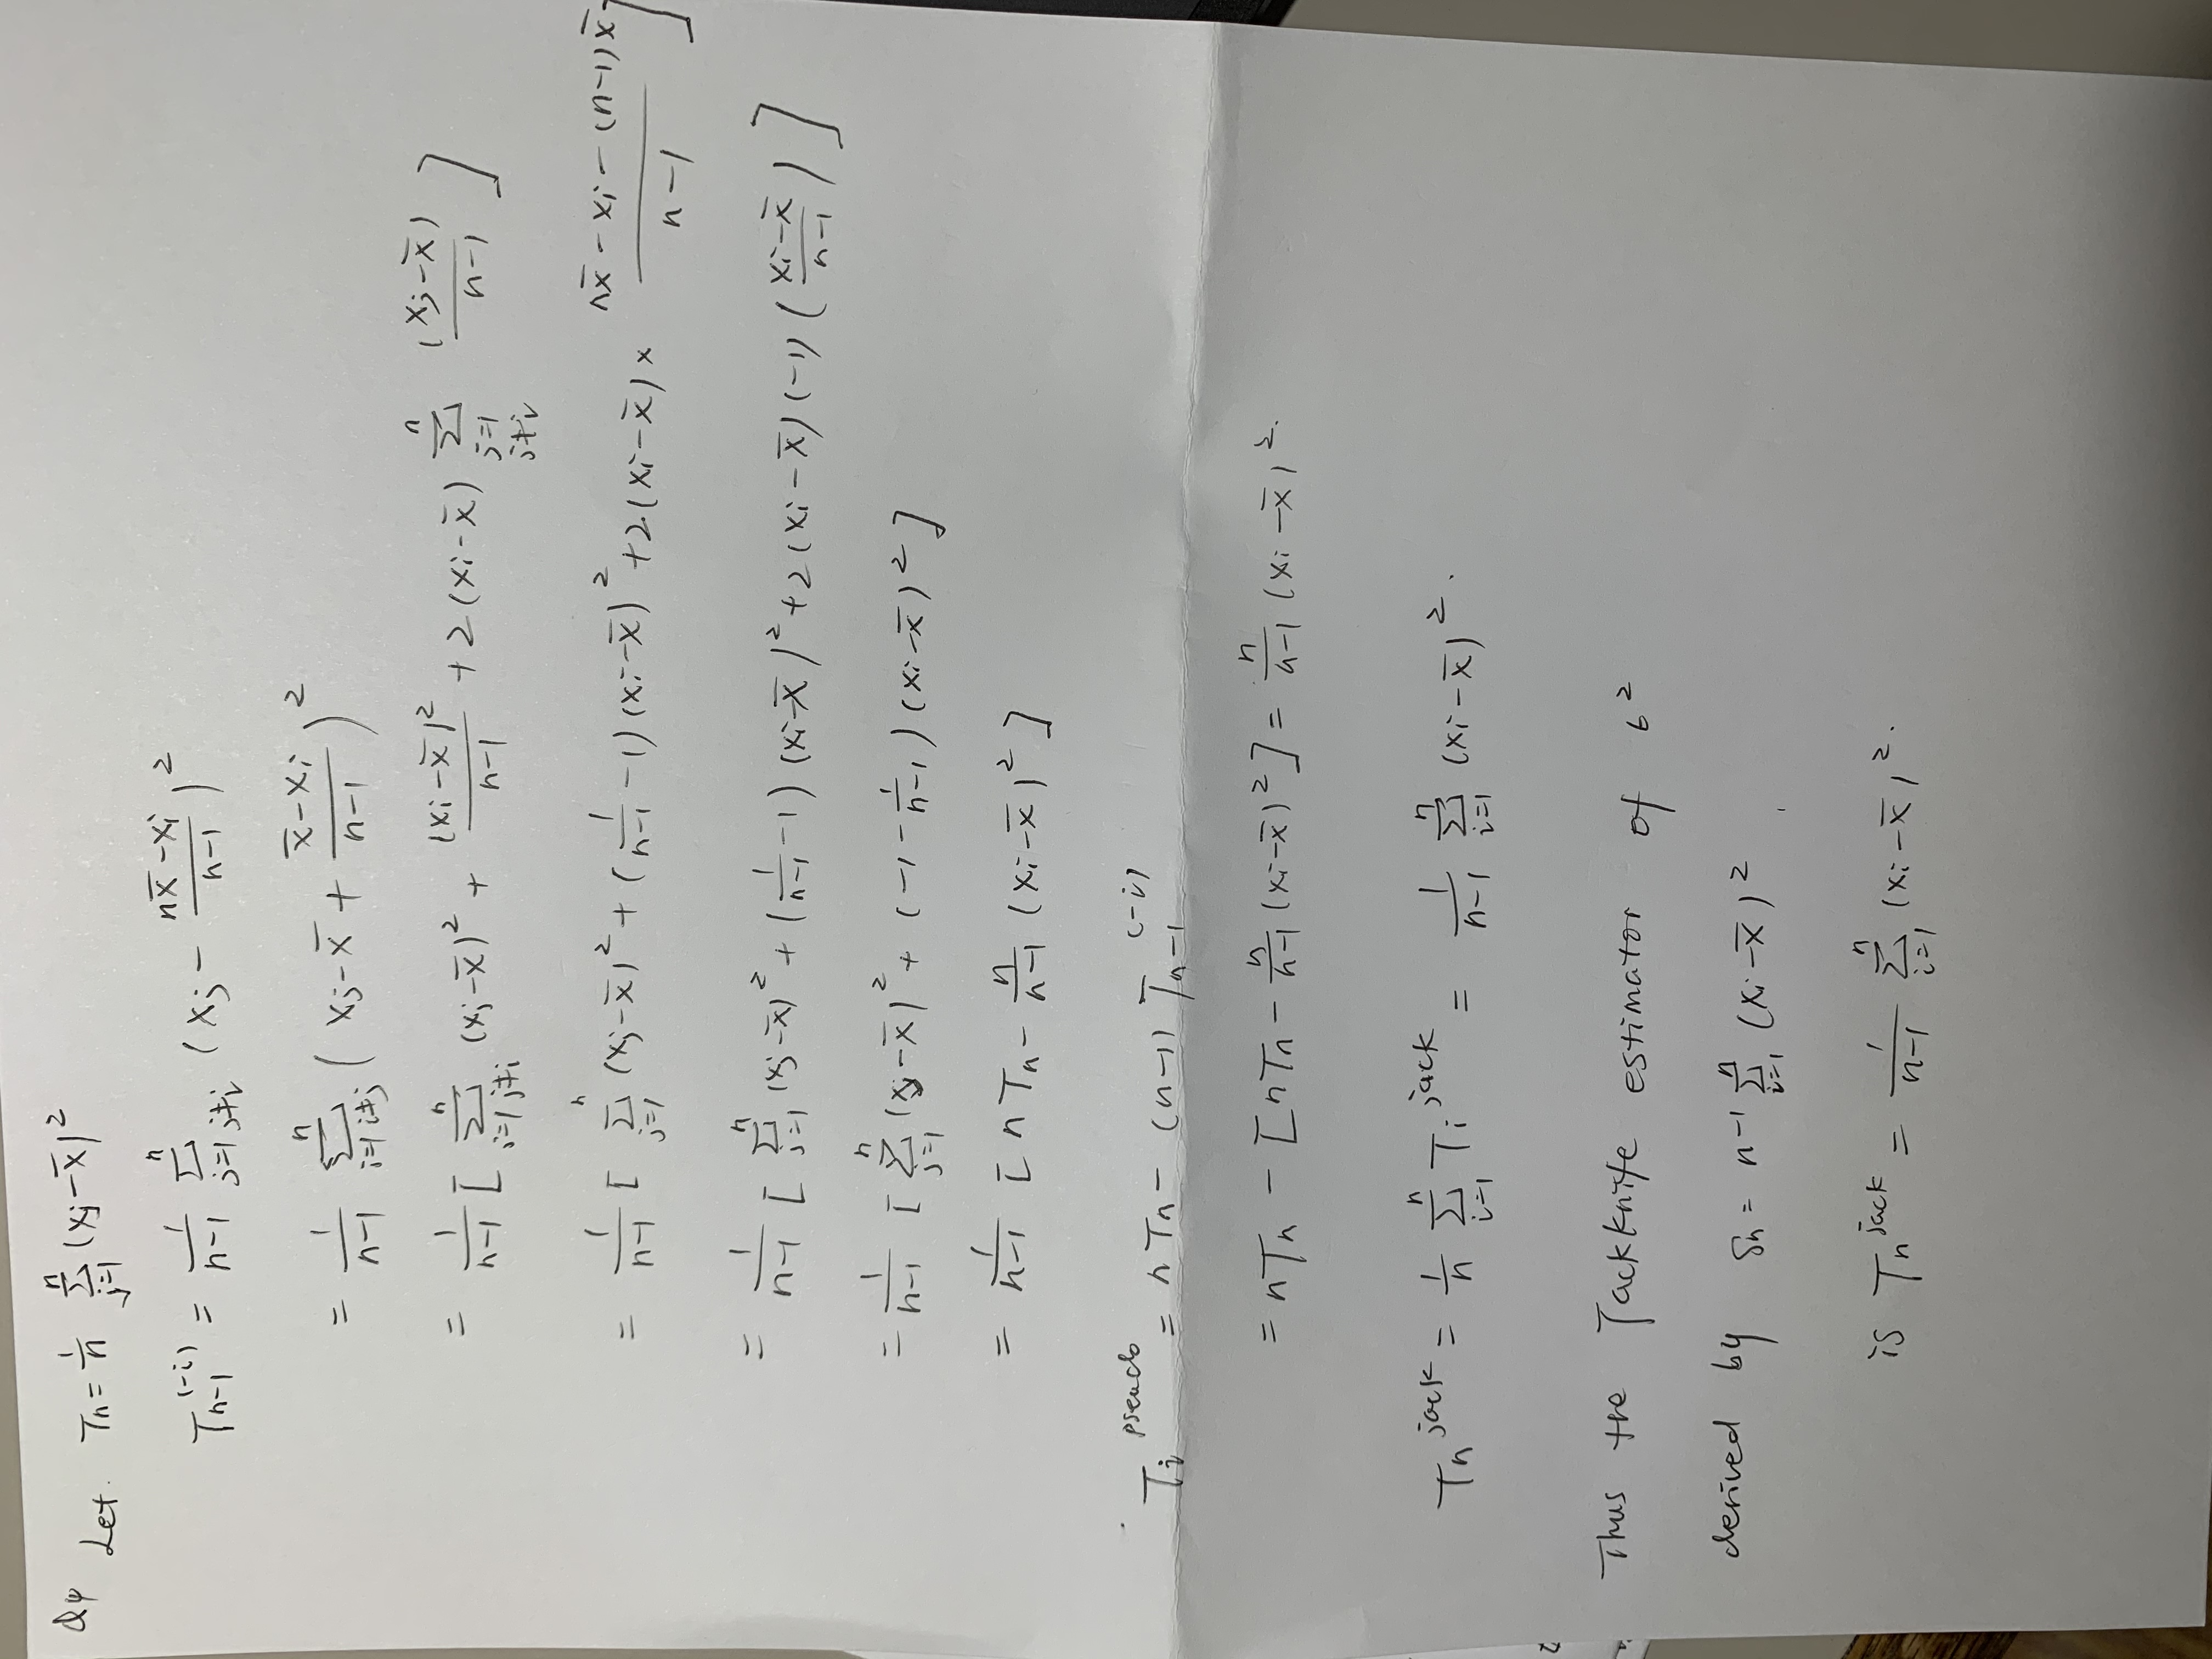 Q4 Let Tn = 1/n Σ_{j=1}^{n} (xj - x̄)²
T_{n-1}^{(-i)} = 1/(n-1) Σ_{j=1 j≠i}^{n} (xj - (nx̄ - xi)/(n-1))²
= 1/(n-1) Σ_{i=1 i≠j}^{n} (xj - x̄ + (x̄ - xi)/(n-1))²
= 1/(n-1) [ Σ_{j=1 j≠i}^{n} (xj - x̄)² + (xi - x̄)²/(n-1) + 2(xi - x̄) Σ_{j=1 j≠i}^{n} (xj - x̄)/(n-1) ]
= 1/(n-1) [ Σ_{j=1}^{n} (xj - x̄)² + (1/(n-1) - 1)(xi - x̄)² + 2(xi - x̄) × (nx̄ - xi - (n-1)x̄)/(n-1) ]
= 1/(n-1) [ Σ_{j=1}^{n} (xj - x̄)² + (1/(n-1) - 1)(xi - x̄)² + 2(xi - x̄)(-1)((xi - x̄)/(n-1)) ]
= 1/(n-1) [ Σ_{j=1}^{n} (xj - x̄)² + (-1 - 1/(n-1))(xi - x̄)² ]
= 1/(n-1) [ nTn - n/(n-1) (xi - x̄)² ]
Ti^{pseudo} = nTn - (n-1) T_{n-1}^{(-i)}
= nTn - [nTn - n/(n-1) (xi - x̄)²] = n/(n-1) (xi - x̄)².
Tn^{jack} = 1/n Σ_{i=1}^{n} Ti^{jack} = 1/(n-1) Σ_{i=1}^{n} (xi - x̄)².
Thus the Jackknife estimator of σ²
derived by δn = n⁻¹ Σ_{i=1}^{n} (xi - x̄)²
is Tn^{jack} = 1/(n-1) Σ_{i=1}^{n} (xi - x̄)².